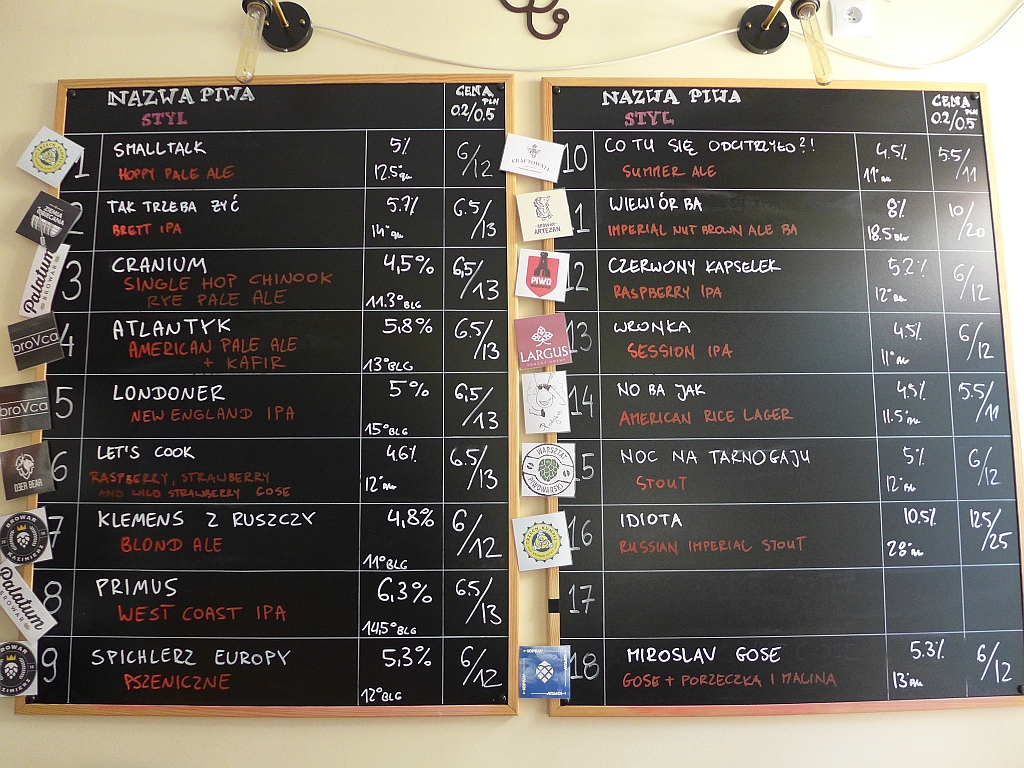 NAZWA PIWA
STYL
CENA PLN
0.2/0.5
1 SMALLTALK 5% 6/12
HOPPY PALE ALE 12.5°BLG
2 TAK TRZEBA ŻYĆ 5.7% 6.5/13
BRETT IPA 14°BLG
3 CRANIUM 4,5% 6,5/13
SINGLE HOP CHINOOK
RYE PALE ALE 11.3°BLG
4 ATLANTYK 5,8% 6.5/13
AMERICAN PALE ALE
+ KAFIR 13°BLG
5 LONDONER 5% 6,5/13
NEW ENGLAND IPA 15°BLG
6 LET'S COOK 4.6% 6.5/13
RASPBERRY, STRAWBERRY
AND WILD STRAWBERRY GOSE 12°BLG
7 KLEMENS Z RUSZCZY 4,8% 6/12
BLOND ALE 11°BLG
8 PRIMUS 6,3% 6.5/13
WEST COAST IPA 14,5°BLG
9 SPICHLERZ EUROPY 5,3% 6/12
PSZENICZNE 12°BLG
NAZWA PIWA
STYL
CENA PLN
0.2/0.5
10 CO TU SIĘ ODCITRZYŁO?! 4.5% 5.5/11
SUMMER ALE 11°BLG
11 WIEWIÓR BA 8% 10/20
IMPERIAL NUT BROWN ALE BA 18.5°BLG
12 CZERWONY KAPSELEK 5.2% 6/12
RASPBERRY IPA 12°BLG
13 WRONKA 4.5% 6/12
SESSION IPA 11°BLG
14 NO BA JAK 4.5% 5.5/11
AMERICAN RICE LAGER 11.5°BLG
15 NOC NA TARNOGAJU 5% 6/12
STOUT 12°BLG
16 IDIOTA 10.5% 12.5/25
RUSSIAN IMPERIAL STOUT 28°BLG
17
18 MIROSLAV GOSE 5.3% 6/12
GOSE + PORZECZKA I MALINA 13°BLG
ZIEMIA OBIECANA
Palatum
BROWAR
broVca
broVca
BEER BEAR
BROWAR
KAZIMIERZ
Palatum
BROWAR
BROWAR
KAZIMIERZ
CHAŁTOWATA
BROWAR
ARTEZAN
PIWO
LARGUS
WARSZTAT
PIWOWARSKI